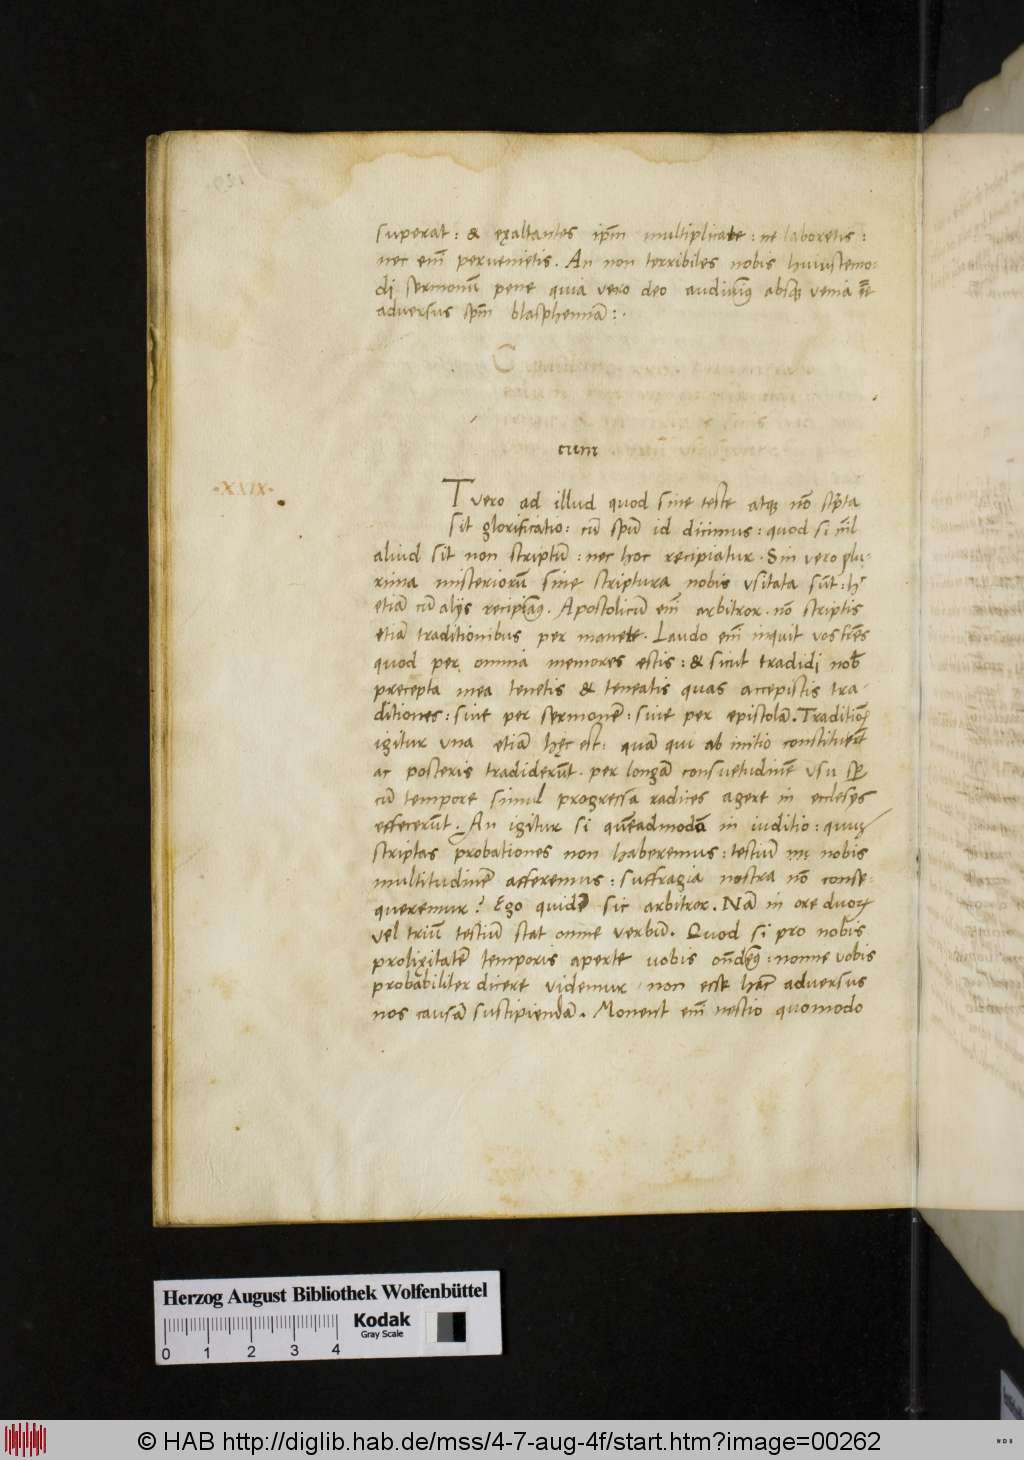 superat : & exaltantes ip̄m multiplicate : ne laboretis :
nec em̄ peruenietis . An non terribiles nobis huiustemo-
di sermonū pene quia vero deo absq̄ venia
adversus sp̄m blasphemiā : .
cum
·XXIX· T vero ad illud quod sine teste atq̄ nō
sit glorificatio : cū spū id dicimus : quod si
aliud sit non scriptū : nec hoc recipiatur . Sin vero plu-
rima misteriorū sine scriptura nobis vsitata sūt : h̄
etiā cū alijs . Apostolicū em̄ arbitror . nō scriptis
etiā traditionibus per manete . Laudo em̄ inquit vos fr̄es
quod per omnia memores estis : & sicut tradidi nob̄
precepta mea tenetis & teneatis quas accepistis tra-
ditiones : sive per sermonē : sive per epistolā . Traditioꝝ
igitur vna etiā hęc est : quā qui ab initio
ac posteris tradiderūt . per longā consuetudinē vsu
cū tempore simul progressa radices agere in
effecerūt . An igitur si quēadmodū in iuditio : quuꝫ
scriptas probationes non haberemus : testiū nobis
multitudinē afferemus : suffragia nostra nō conse-
queremur ? Ego quidē sic arbitror . Nā in ore duoꝝ
vel triū testiū stat omne verbū . Quod si pro nobis
prolixitatē temporis aperte vobis : nonne vobis
probabiliter dicere videmur non esse hāc adversus
nos causā suscipiendā . Monent em̄ nescio quomodo
Herzog August Bibliothek Wolfenbüttel
Kodak
Gray Scale
0 1 2 3 4
© HAB http://diglib.hab.de/mss/4-7-aug-4f/start.htm?image=00262